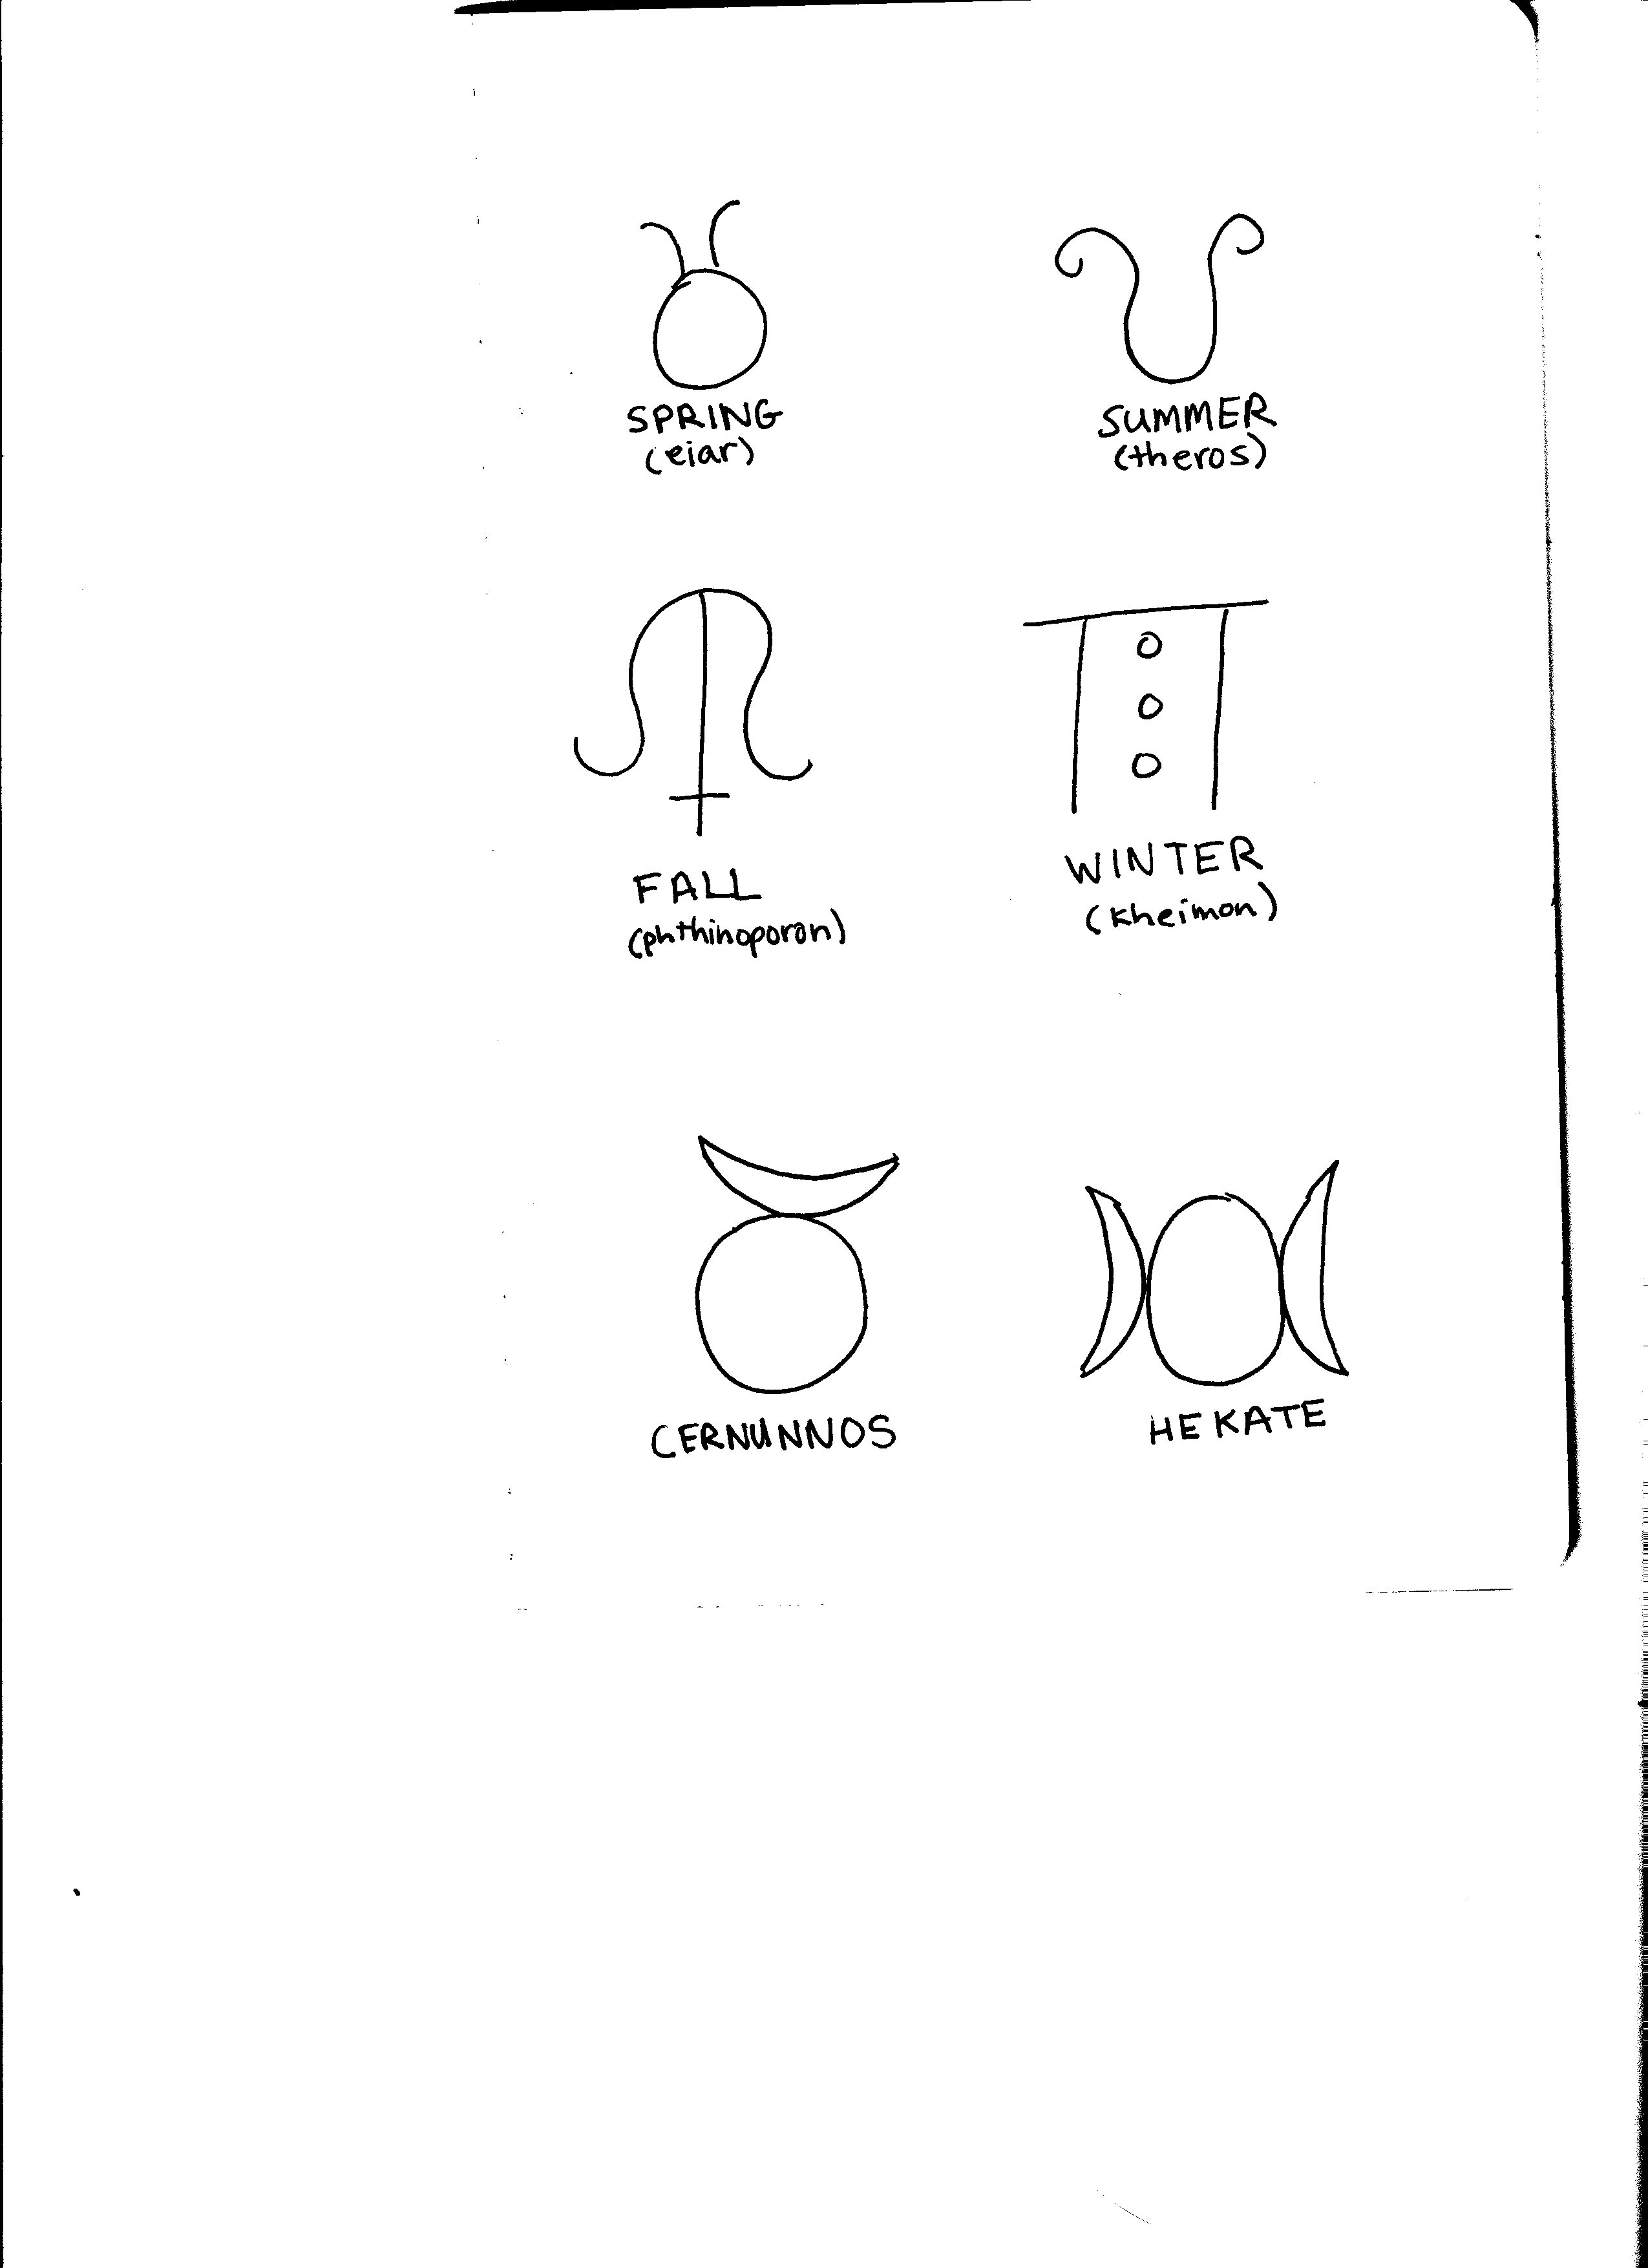 SPRING
(eiar)
SUMMER
(theros)
FALL
(phthinoporon)
WINTER
(kheimon)
CERNUNNOS
HEKATE